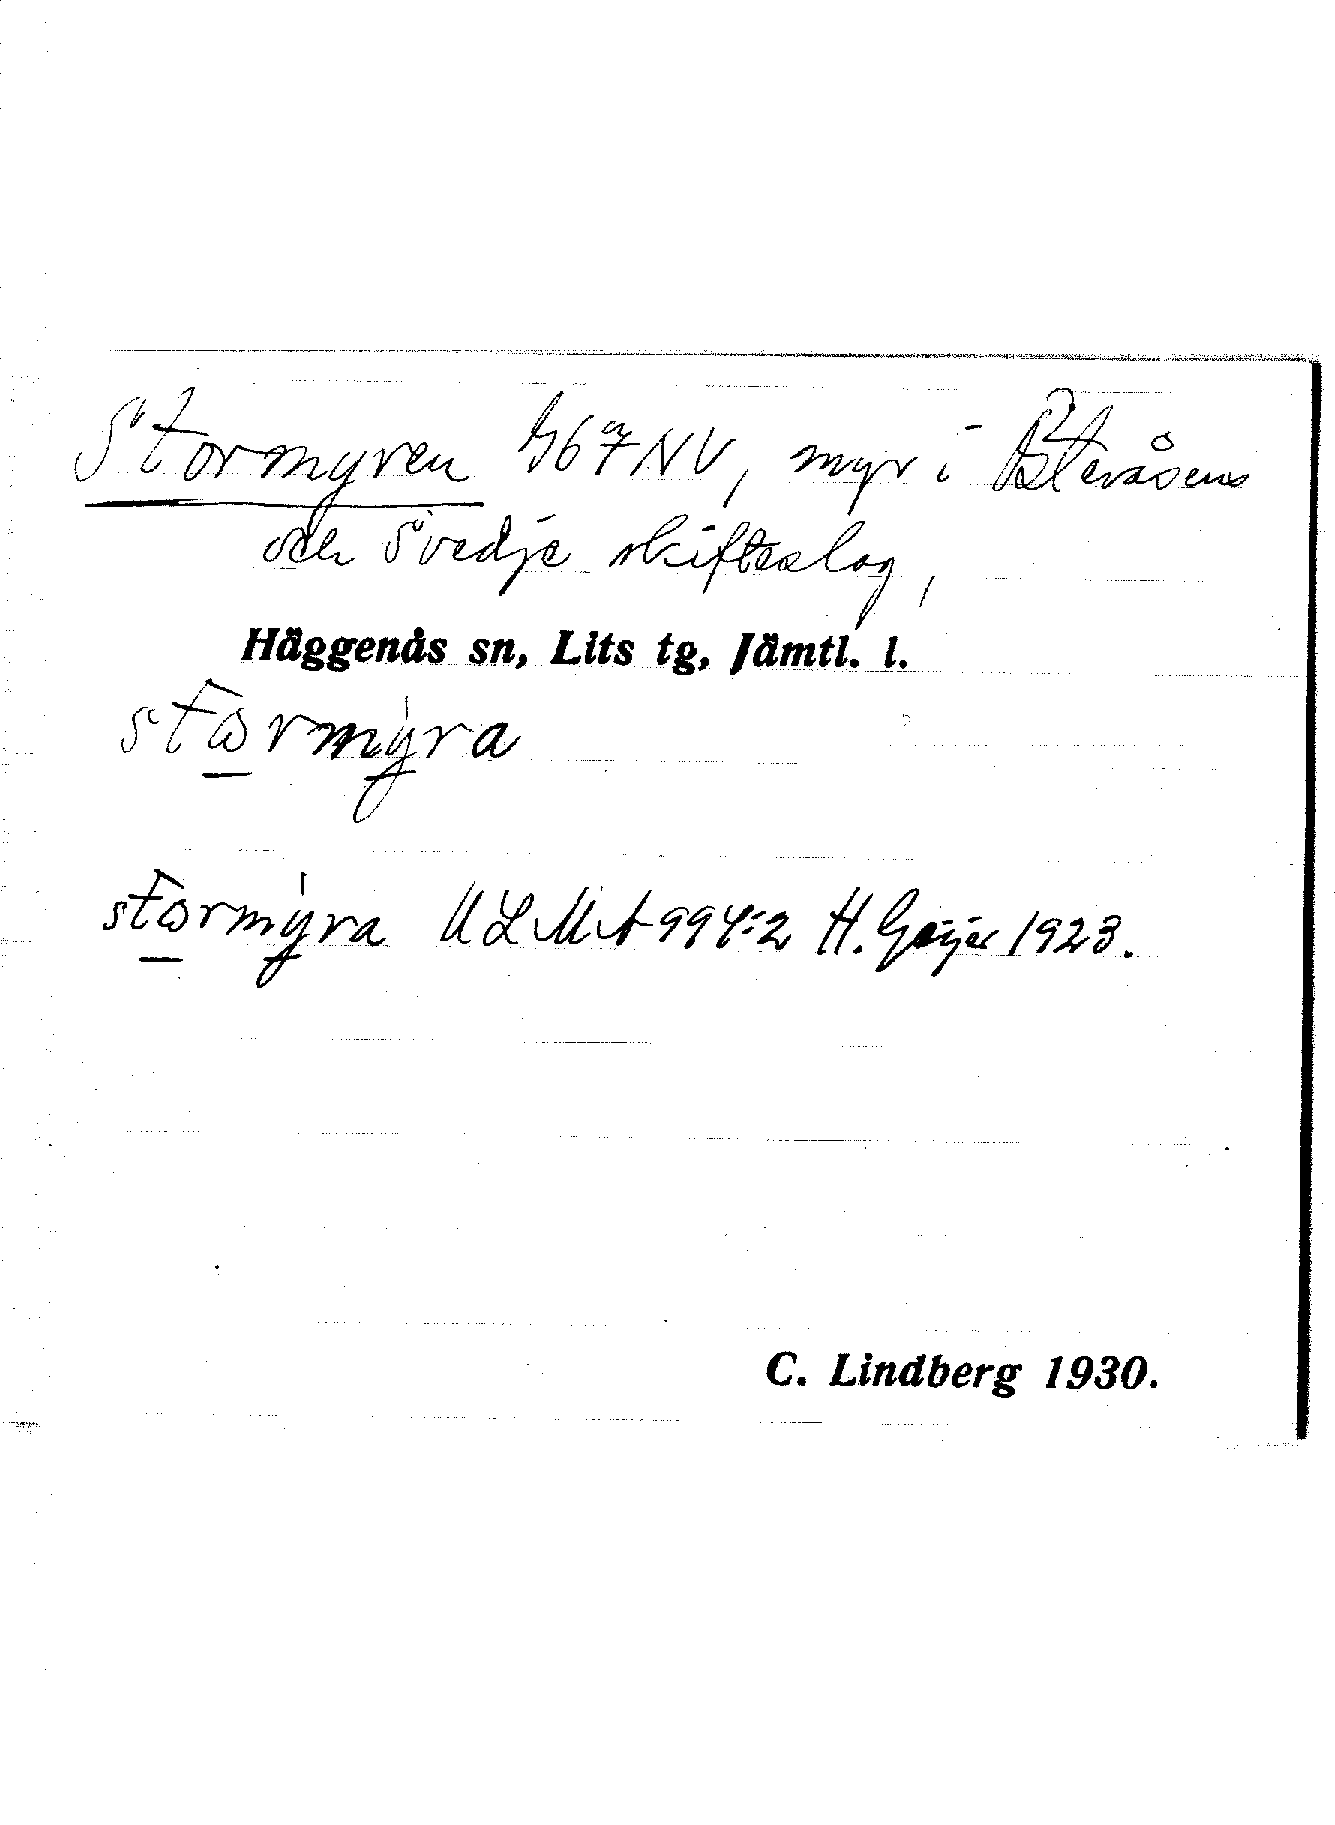 Stormyren G67NV, myr i Bleråsens
och Svedje skifteslag,
Häggenås sn, Lits tg, Jämtl. l.
stormyra
stormyra ULMA 994:2 H. Geijer 1923.
C. Lindberg 1930.